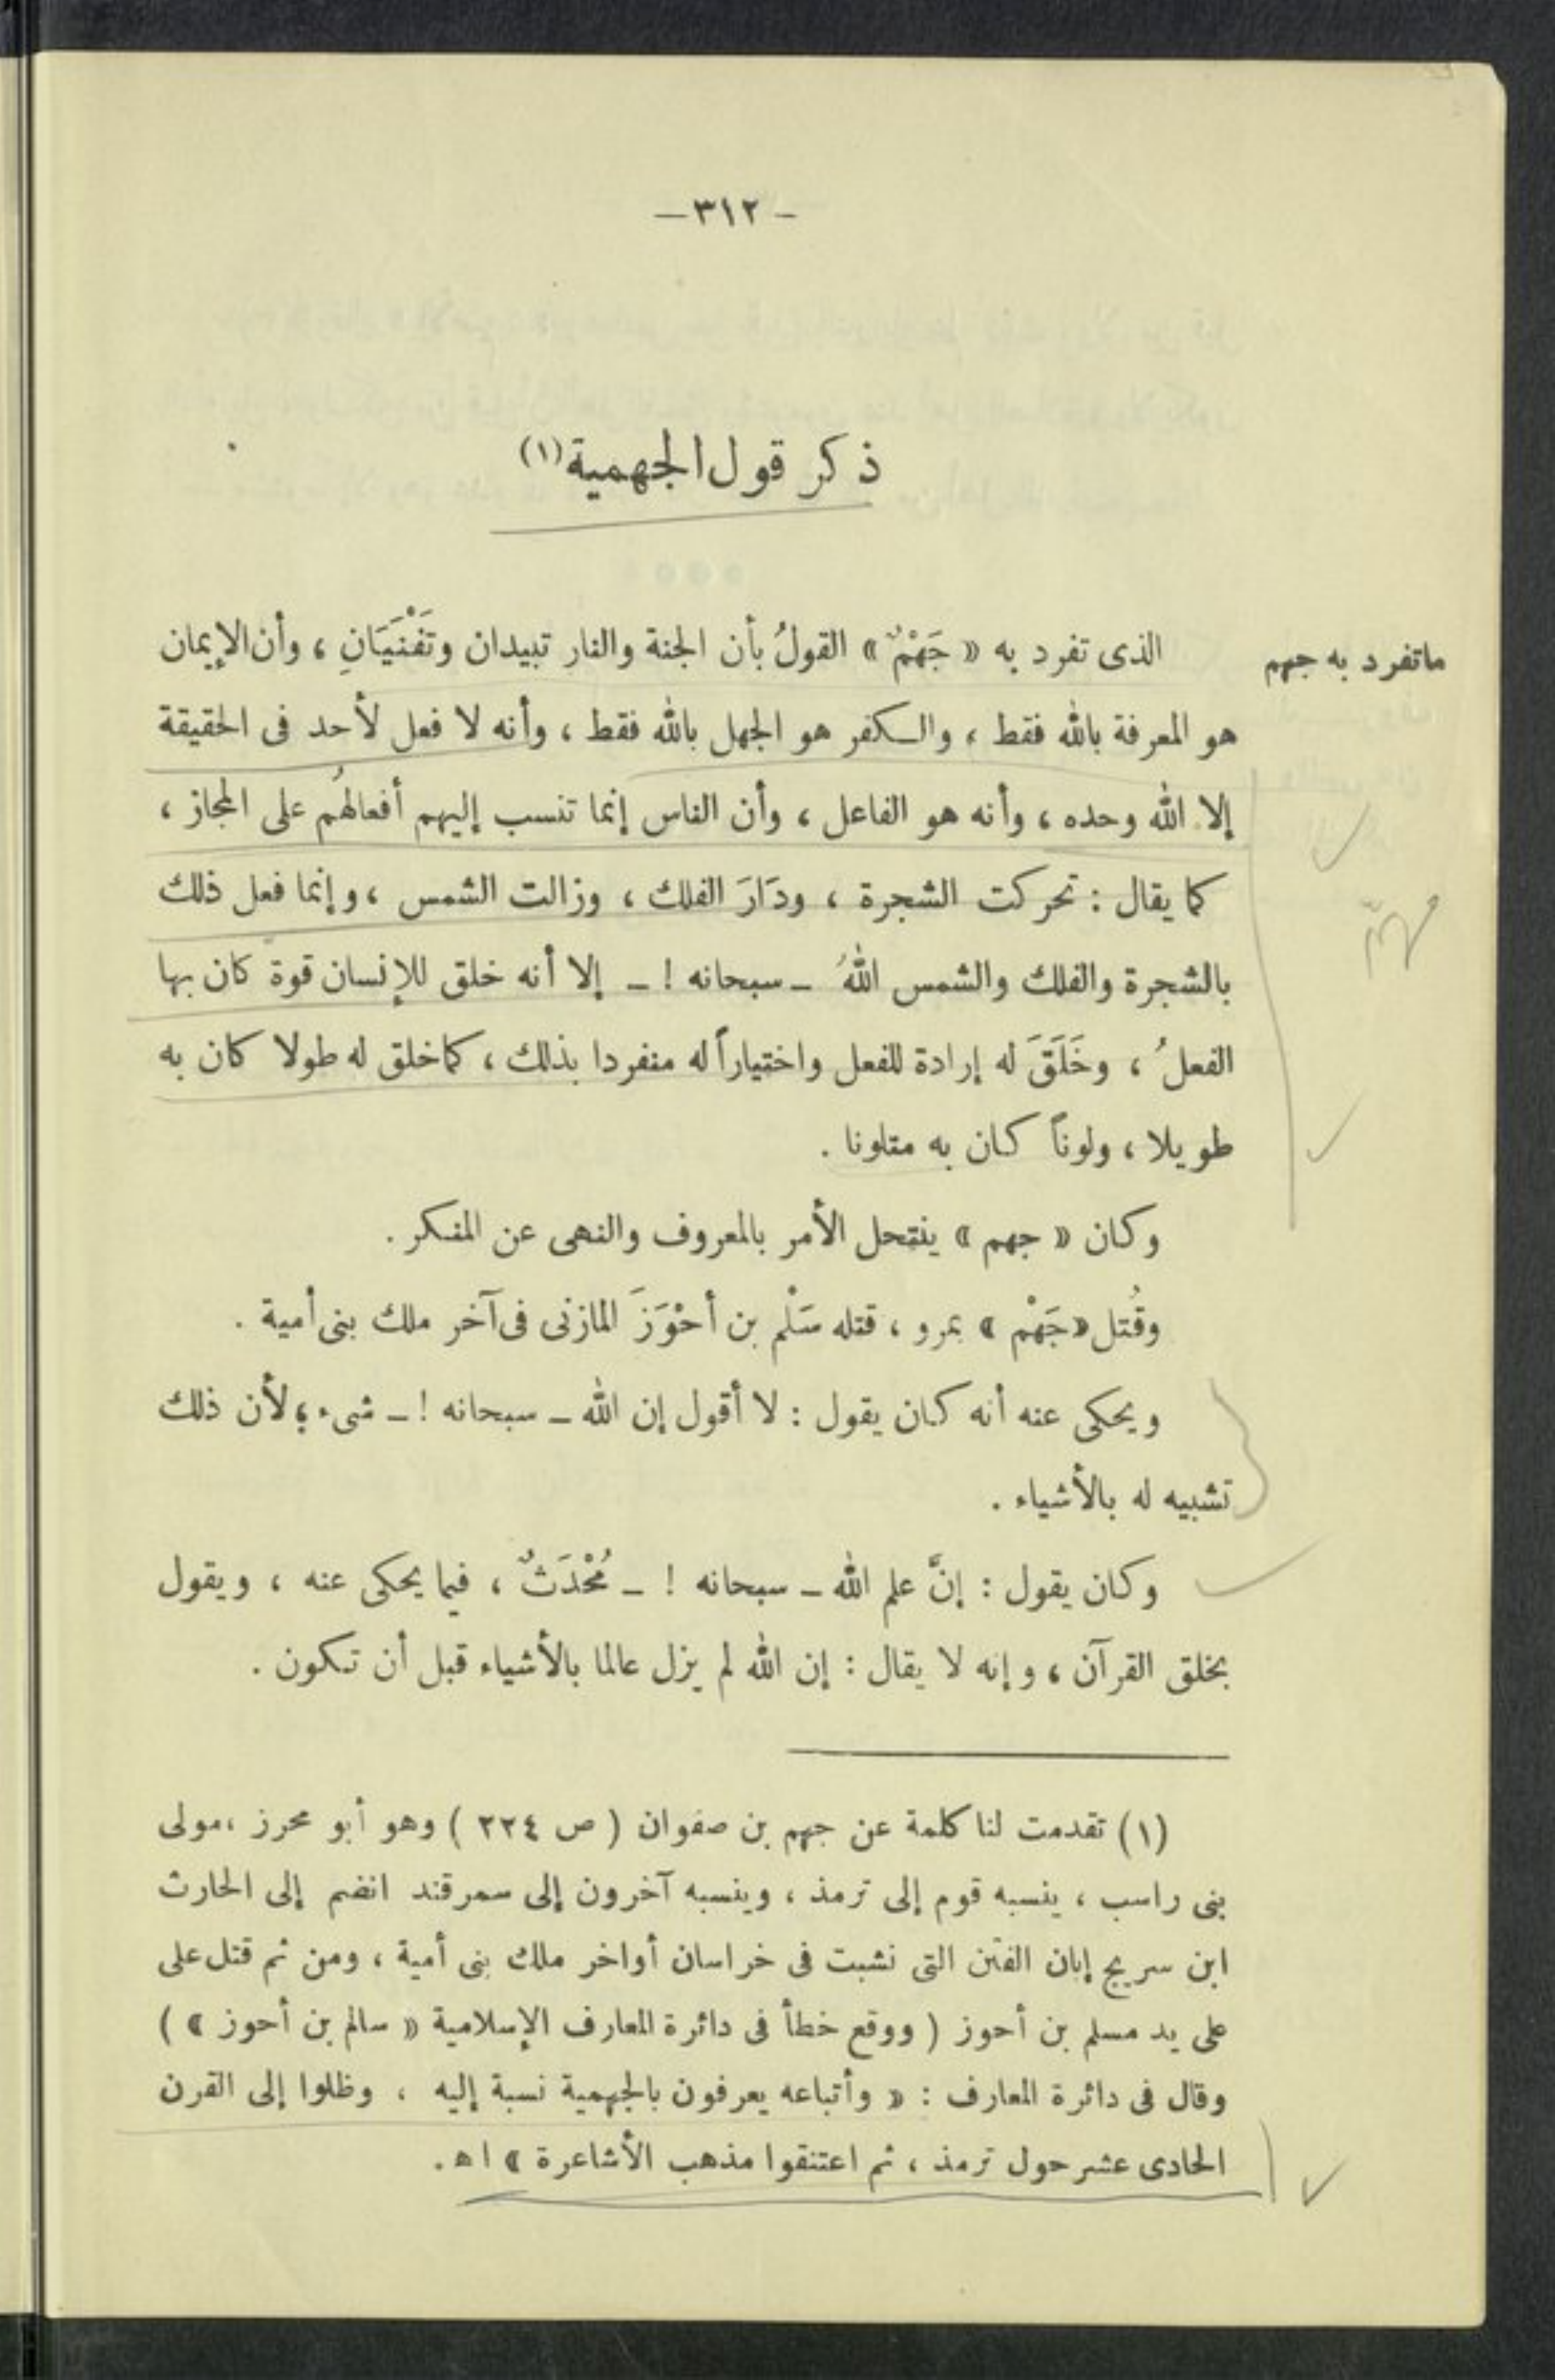 — ٣١٢ —
ذكر قول الجهمية (١)
ما تفرد به جهم
الذى تفرد به « جَهْمٌ » القولُ بأن الجنة والنار تبيدان وتَفْنَيَانِ ، وأن الإيمان
هو المعرفة بالله فقط ، والكفر هو الجهل بالله فقط ، وأنه لا فعل لأحد فى الحقيقة
إلا الله وحده ، وأنه هو الفاعل ، وأن الناس إنما تنسب إليهم أفعالهُم على المجاز ،
كما يقال : تحركت الشجرة ، ودَارَ الفلك ، وزالت الشمس ، وإنما فعل ذلك
مهمّ
بالشجرة والفلك والشمس اللهُ – سبحانه ! – إلا أنه خلق للإنسان قوة كان بها
الفعلُ ، وخَلَقَ له إرادة للفعل واختياراً له منفردا بذلك ، كما خلق له طولا كان به
طويلا ، ولوناً كان به متلونا .
وكان « جهم » ينتحل الأمر بالمعروف والنهى عن المنكر .
وقُتل « جَهْم » بمرو ، قتله سَلْم بن أحْوَزَ المازنى فى آخر ملك بنى أمية .
ويحكى عنه أنه كان يقول : لا أقول إن الله – سبحانه ! – شىء ؛ لأن ذلك
تشبيه له بالأشياء .
وكان يقول : إنَّ علم الله – سبحانه ! – مُحْدَثٌ ، فيما يحكى عنه ، ويقول
بخلق القرآن ، وإنه لا يقال : إن الله لم يزل عالما بالأشياء قبل أن تكون .
(١) تقدمت لنا كلمة عن جهم بن صفوان ( ص ٢٢٤ ) وهو أبو محرز ، مولى
بنى راسب ، ينسبه قوم إلى ترمذ ، وينسبه آخرون إلى سمرقند انضم إلى الحارث
ابن سريج إبان الفتن التى نشبت فى خراسان أواخر ملك بنى أمية ، ومن ثم قتل على
على يد مسلم بن أحوز ( ووقع خطأ فى دائرة المعارف الإسلامية « سالم بن أحوز » )
وقال فى دائرة المعارف : « وأتباعه يعرفون بالجهمية نسبة إليه ، وظلوا إلى القرن
الحادى عشر حول ترمذ ، ثم اعتنقوا مذهب الأشاعرة » اه .